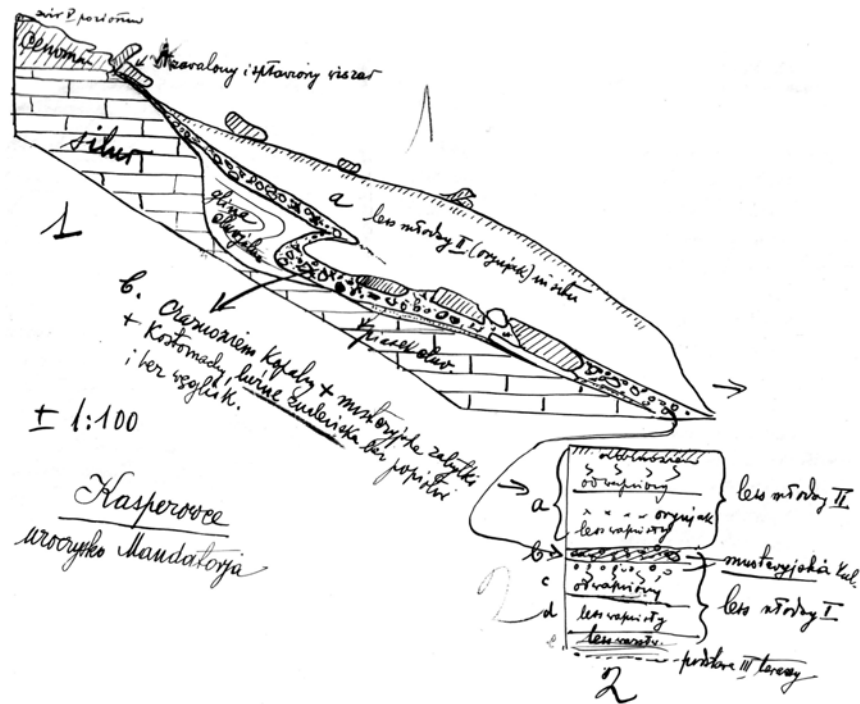 żwir V poziomu
Cenoman
zawalony i spławiony wiszar
1
silur
1
glina
eluwjalna
a less młodszy II (orynjak) in situ
piasek eluw.
b. Czarnoziem kopalny + musteryjskie zabytki
+ Kostomachy, luźne znaleziska bez popiołu
i bez węgielk.
± 1:100
Kasperowce
uroczysko Mandatorja
a
odwapniony
× × × × orynjak
less wapnisty
less młodszy II
b
musteryjska kul.
c
odwapniony
d
less wapnisty
less warstw.
e
less młodszy I
podstawa III terasy
2
2